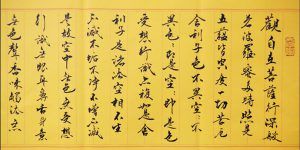 觀自在菩薩行深般
若波羅蜜多時照見
五蘊皆空度一切苦厄
舍利子色不異空空不
異色色即是空空即是色
受想行識亦復如是舍
利子是諸法空相不生
不滅不垢不淨不增不減
是故空中無色無受想
行識無眼耳鼻舌身意
無色聲香味觸法無